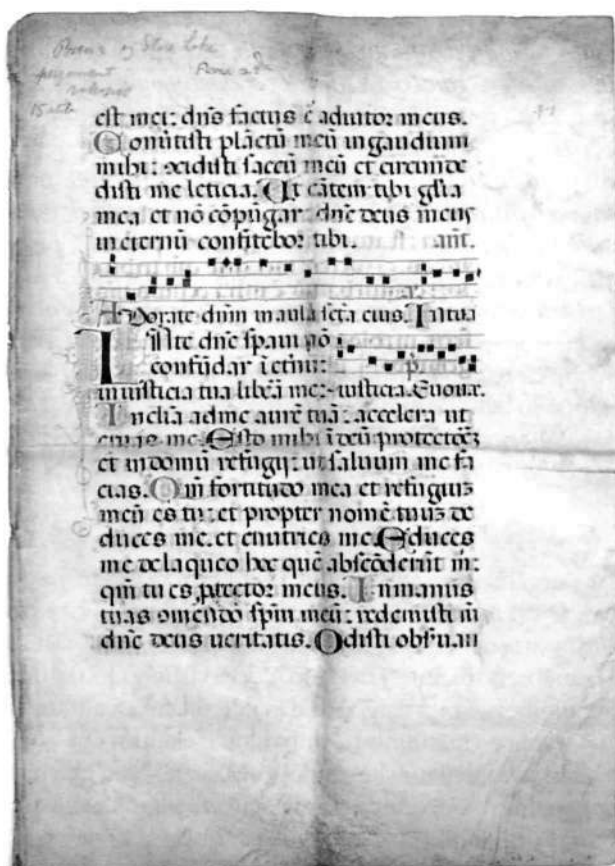 15
est mei: dñs factus ē adiutor meus.
Conūtisti plāctū meū in gaudium
mihi: cõidisti saccū meū et circumde
disti me leticia. Ut cātem tibi glīa
mea et nō cōpūgar: dñe deus meus
in eternū confitebor tibi. ant.
Adorate dnm in aula scta eius. In tua
IN te dñe spaui nō
confūdar ī etnū:
in iusticia tua libēa me: iusticia. Euouae.
Inclīa ad me aurē tuā: accelera ut
eruas me. Esto mihi ī deū protectorē
et in domū refugij: ut saluum me fa
cias. Qm̄ fortitudo mea et refugiuz
meū es tu: et propter nomē tuuz de
duces me et enutries me. Educes
me de laqueo hoc quē abscōderūt m̄:
qm̄ tu es ꝓtector meus. In manus
tuas ꝯmendo spm̄ meū: redemisti m̄
dñe deus ueritatis. Odisti obseruan